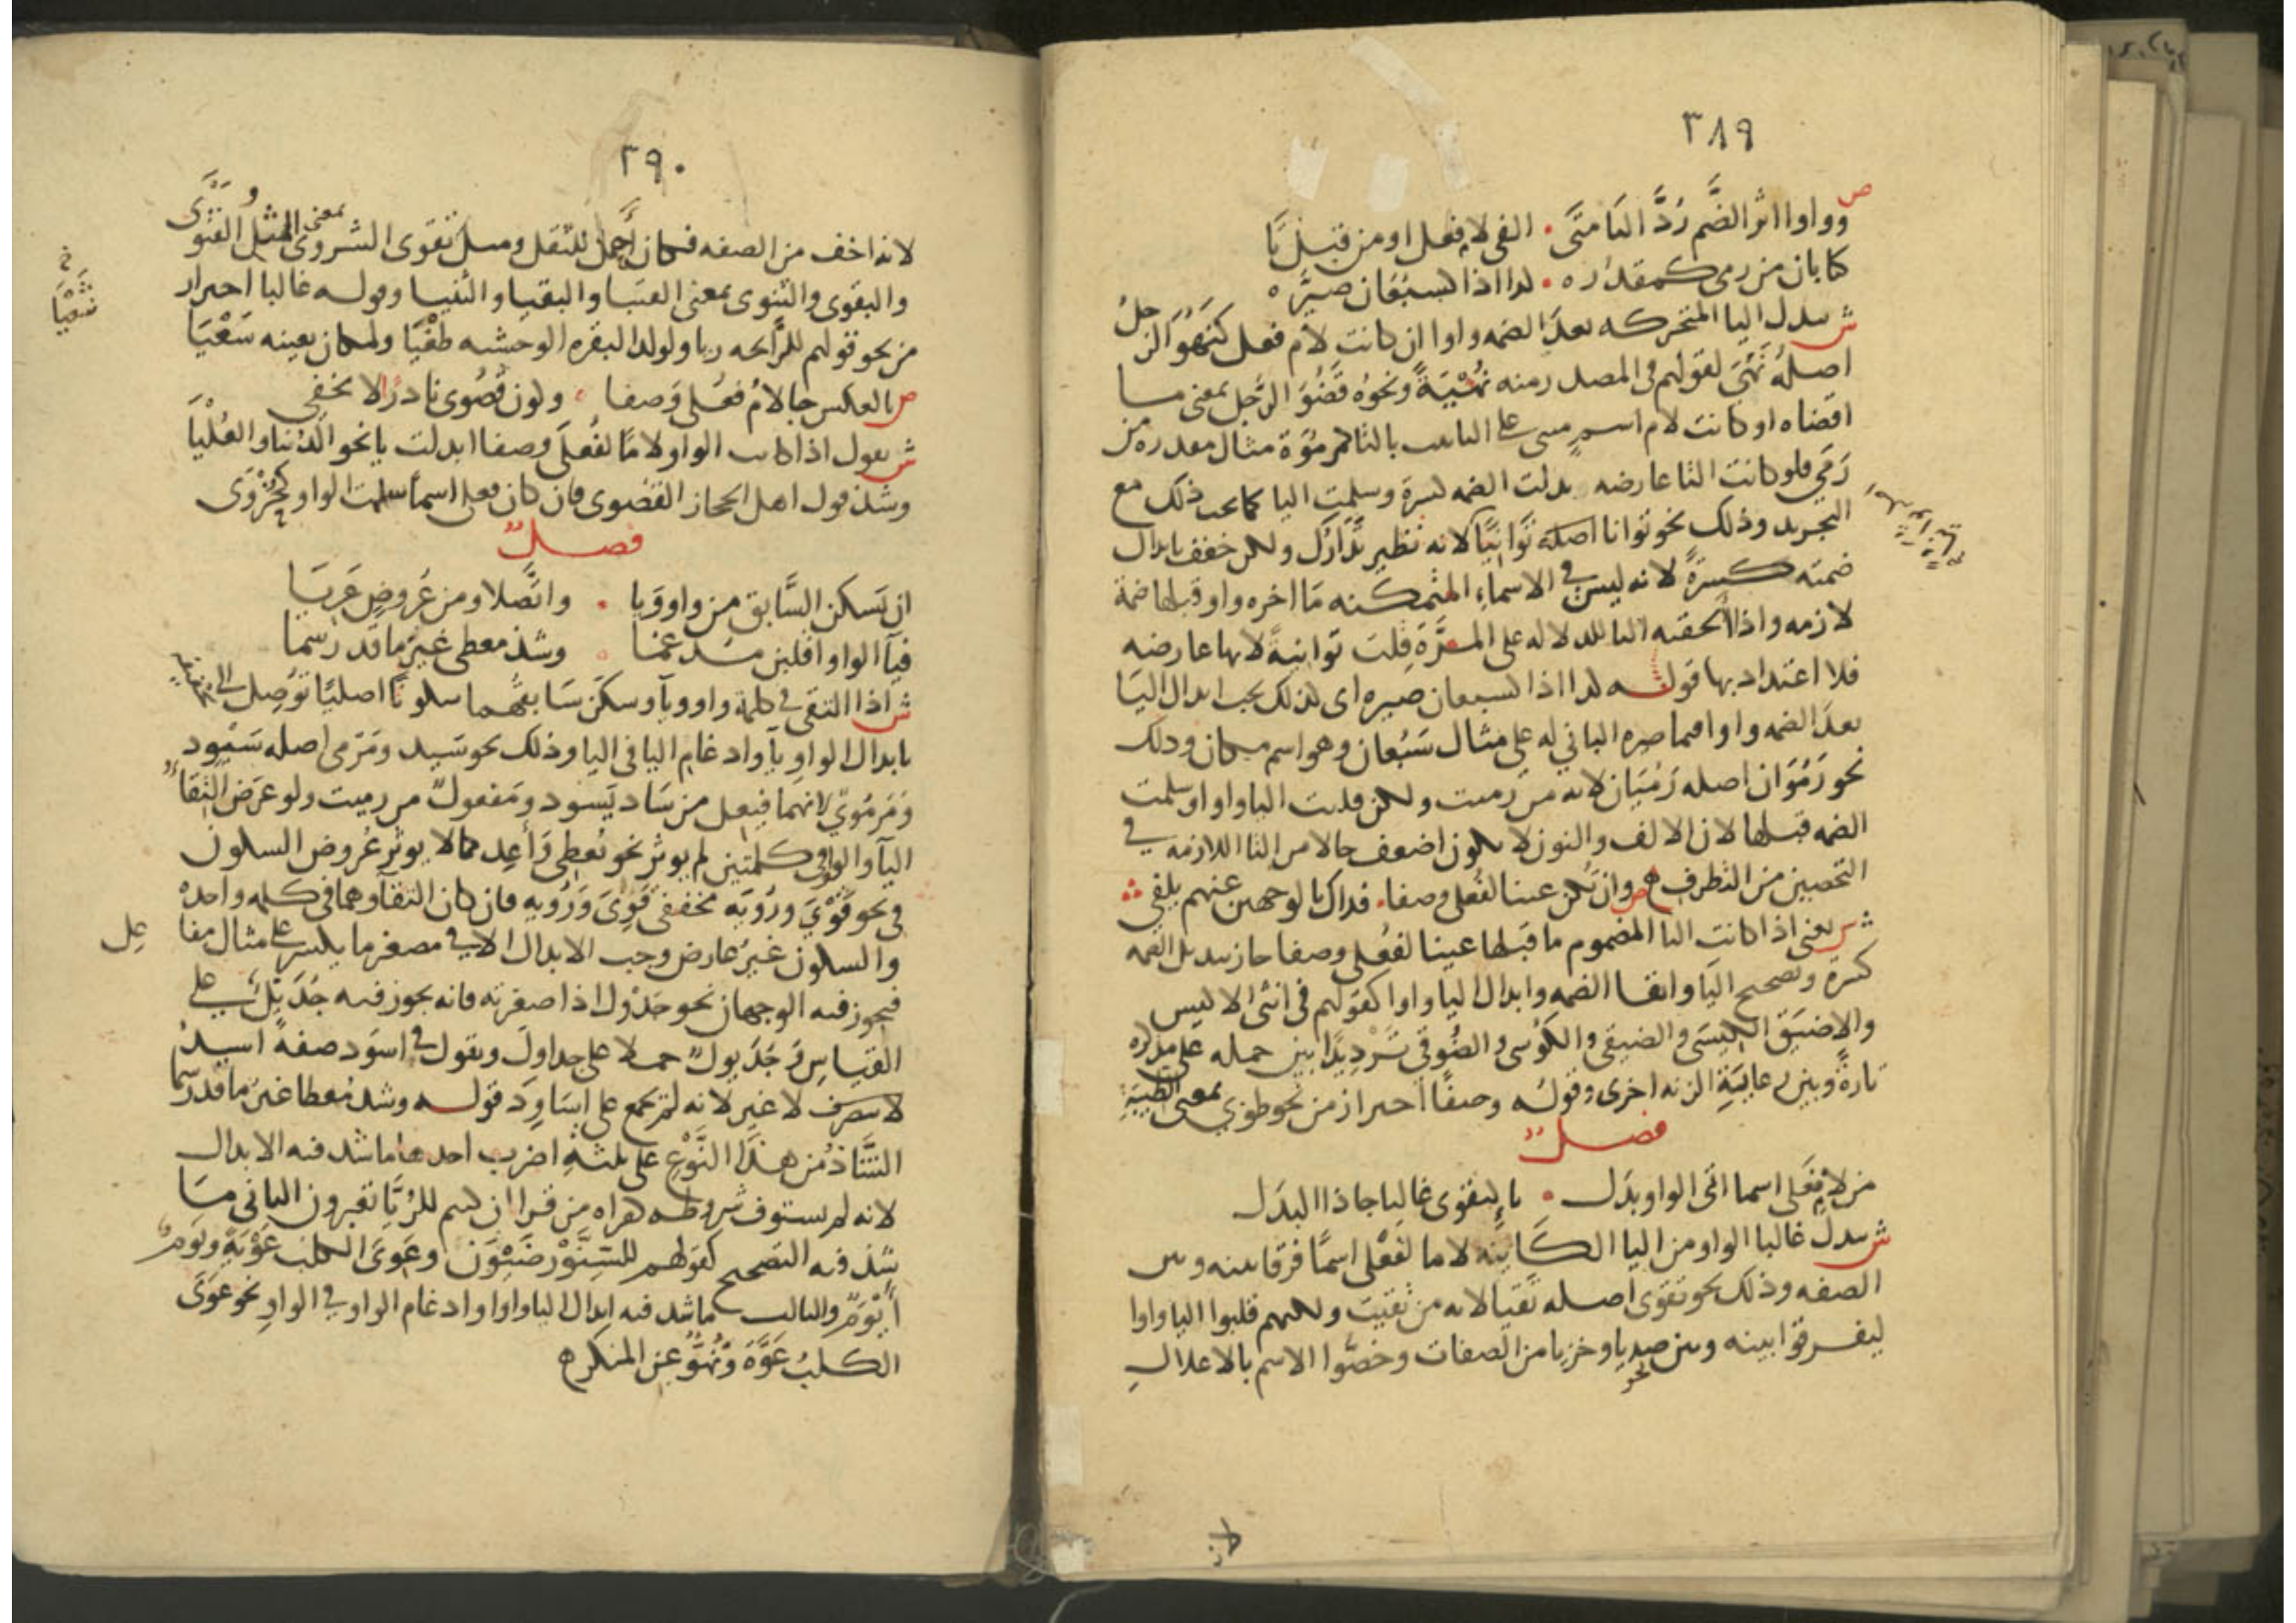 ٣٨٩
ص
وواوا اثر الضم رد اليا متى . الفي لام فعل او من قبل تا
كتا بان من رمى كمقدره . كذا اذا كسبعان صيره
ش تبدل اليا المتحركه بعد الضمه واوا ان كانت لام فعل كنهو الرجل
اصله نهي لقولهم في المصدر منه نهية ونحوه قضو الرجل بمعنى ما
اقضاه او كانت لام اسم مبني على التانيث بالتا كمرموة مثال مقدرة من
رمى فلو كانت التا عارضه بدلت الضمه كسرة وسلمت اليا كما يجب ذلك مع
التجريد وذلك نحو توانا اصله توانيا لانه نظير تدارك ولكن خفف بابدال
ضمته كسرة لانه ليس في الاسماء المتمكنه ما اخره واو قبلها ضمة
لازمه واذا لحقته التا للدلاله على المرة قلت توانية لانها عارضه
فلا اعتداد بها قوله كذا اذا كسبعان صيره اى كذلك يجب ابدال اليا
بعد الضمه واوا فيما صيره الباني له على مثال سبعان وهو اسم مكان وذلك
نحو رموان اصله رميان لانه من رميت ولكن قلبت اليا واوا وسلمت
الضمه قبلها لان الالف والنون لا يكون اضعف حالا من التا اللازمه في
التحصين من التطرف ه ص وان تكن عينا لفعلى وصفا . فذاك بالوجهين عنهم يلفى
ش يعني اذا كانت اليا المضموم ما قبلها عينا لفعلى وصفا جاز تبديل الضمه
كسرة وتصحيح اليا وابقا الضمه وابدال اليا واوا كقولهم في انثى الاكيس
والاضيق الكيسى والضيقى والكوسى والضوقى ترديدا بين حمله على مذكره
تارة وبين رعاية الزنه اخرى وقوله وصفا احتراز من نحو طوبى بمعنى الطيبة
فصل
من لام فعلى اسما اتى الواو بدل . ياء كتقوى غالبا جا ذا البدل
ش تبدل غالبا الواو من اليا الكاينه لاما لفعلى اسما فرقا بينه وبين
الصفه وذلك نحو تقوى اصله تقيا لانه من تقيت ولكنهم قلبوا اليا واوا
ليفرقوا بينه وبين نحو صديا وخزيا من الصفات وخصوا الاسم بالاعلال
٣٩٠
لانه اخف من الصفه فكان احمل للثقل ومثل تقوى الشروى بمعنى المثل الفتوى
والبقوى والثنوى بمعنى الفتيا والبقيا والثنيا وقوله غالبا احتراز
من نحو قولهم للرائحه ريا ولولد البقره الوحشيه طغيا ولمكان بعينه سعيا
ص بالعكس جا لام فعلى وصفا . وكون قصوى نادرا لا يخفى
ش يقول اذا كانت الواو لاما لفعلى وصفا ابدلت يا نحو الدنيا والعليا
وشذ قول اهل الحجاز القصوى فان كان فعلى اسما سلمت الواو كحزوى
فصل
ان يسكن السابق من واو ويا . واتصلا ومن عروض عريا
فيآ الواو اقلبن مدغما . وشذ معطى غير ما قد رسما
ش اذا التقى في كلمة واو ويآ وسكن سابقهما سكونا اصليا توصل الى تخفيفه
بابدال الواو يآ وادغام اليا في اليا وذلك نحو سيد ومرمي اصله سيود
ومرموي لانهما فيعل من ساد يسود ومفعول من رميت ولو عرض التقاء
اليآ والواو في كلمتين لم يوثر نحو يعطي وَاعد كما لا يوثر عروض السكون
في نحو قوي وروية مخففي قوي ورؤية فان كان التقآوهما في كلمه واحده
والسكون غير عارض وجب الابدال الا في مصغر ما يكسر على مثال مفاعل
فيجوز فيه الوجهان نحو جدول اذا صغرته فانه يجوز فيه جديل على
القياس وجديول حملا على جداول وتقول في اسود صفة اسيد
لا غير لانه لم يجمع على اساود قوله وشذ معطا غير ما قد رسما
الشاذ من هذا النوع على ثلثة اضرب احدها ما شذ فيه الابدال
لانه لم يستوف شروطه كقراه من قرا ان كنتم للريا تعبرون الثاني ما
شذ فيه التصحيح كقولهم للسنور ضيون وعوى الكلب عوية ويوم
ايوم والثالث ما شذ فيه ابدال اليا واوا وادغام الواو في الواو نحو عوى
الكلب عوة ونهو عن المنكر ه